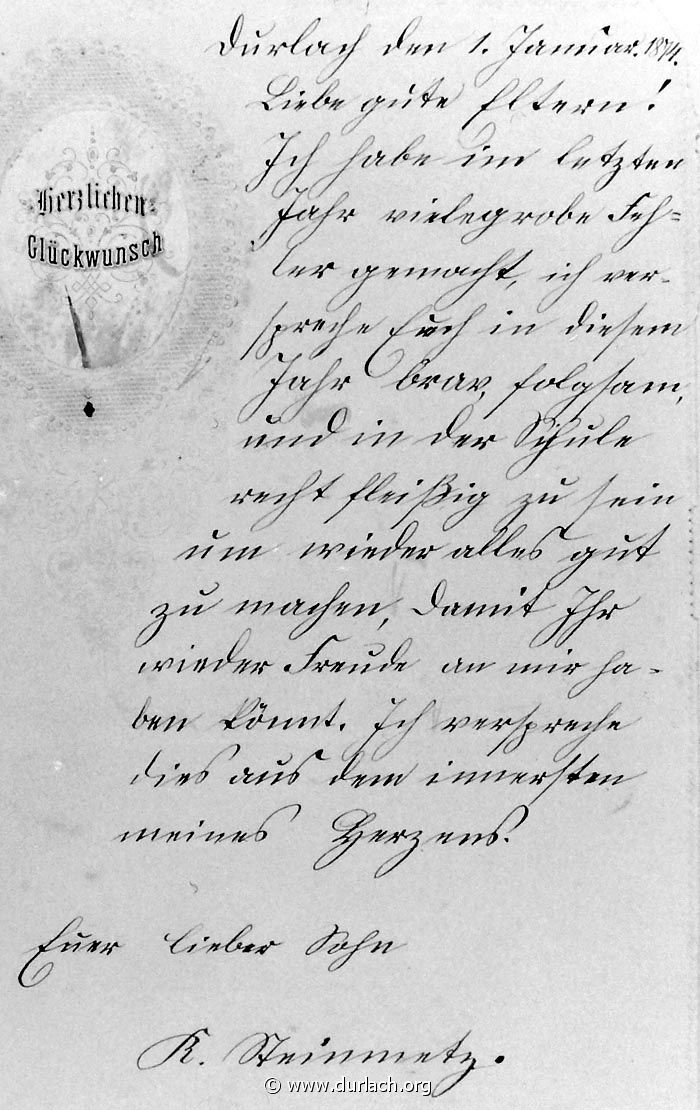 Durlach den 1. Januar. 1874.
Herzlichen
Glückwunsch
Liebe gute Eltern!
Ich habe im letzten
Jahr viele grobe Feh-
ler gemacht, ich ver-
spreche Euch in diesem
Jahr brav, folgsam,
und in der Schule
recht fleißig zu sein
um wieder alles gut
zu machen, damit Ihr
wieder Freude an mir ha-
ben könnt. Ich verspreche
dies aus dem innersten
meines Herzens.
Euer lieber Sohn
K. Steinmetz.
© www.durlach.org